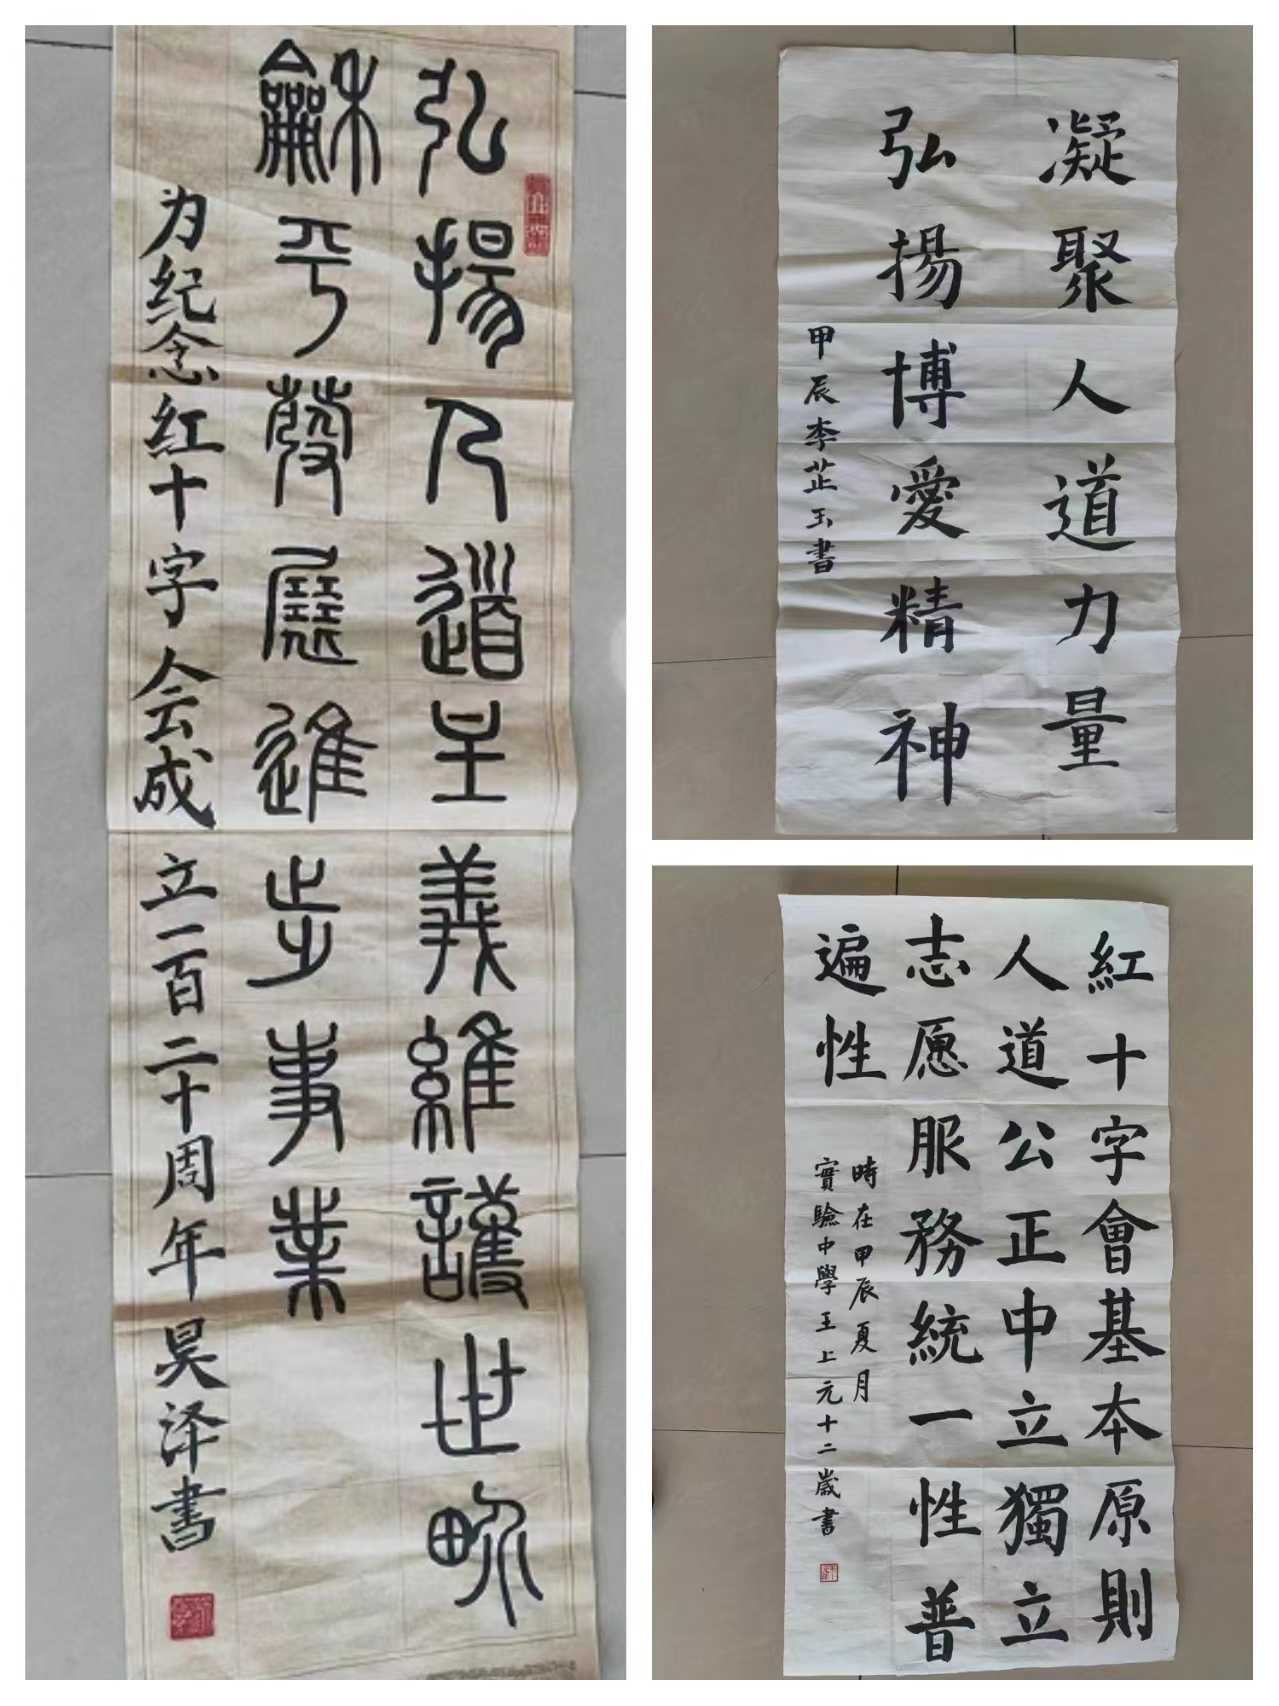 弘揚人道主義維護世界
龢平發展進步事業
为纪念红十字会成立一百二十周年 昊泽书
凝聚人道力量
弘揚博愛精神
甲辰李芷玉書
紅十字會基本原則
人道公正中立獨立
志愿服務統一性普
遍性
時在甲辰夏月
實驗中學王上元十二歲書